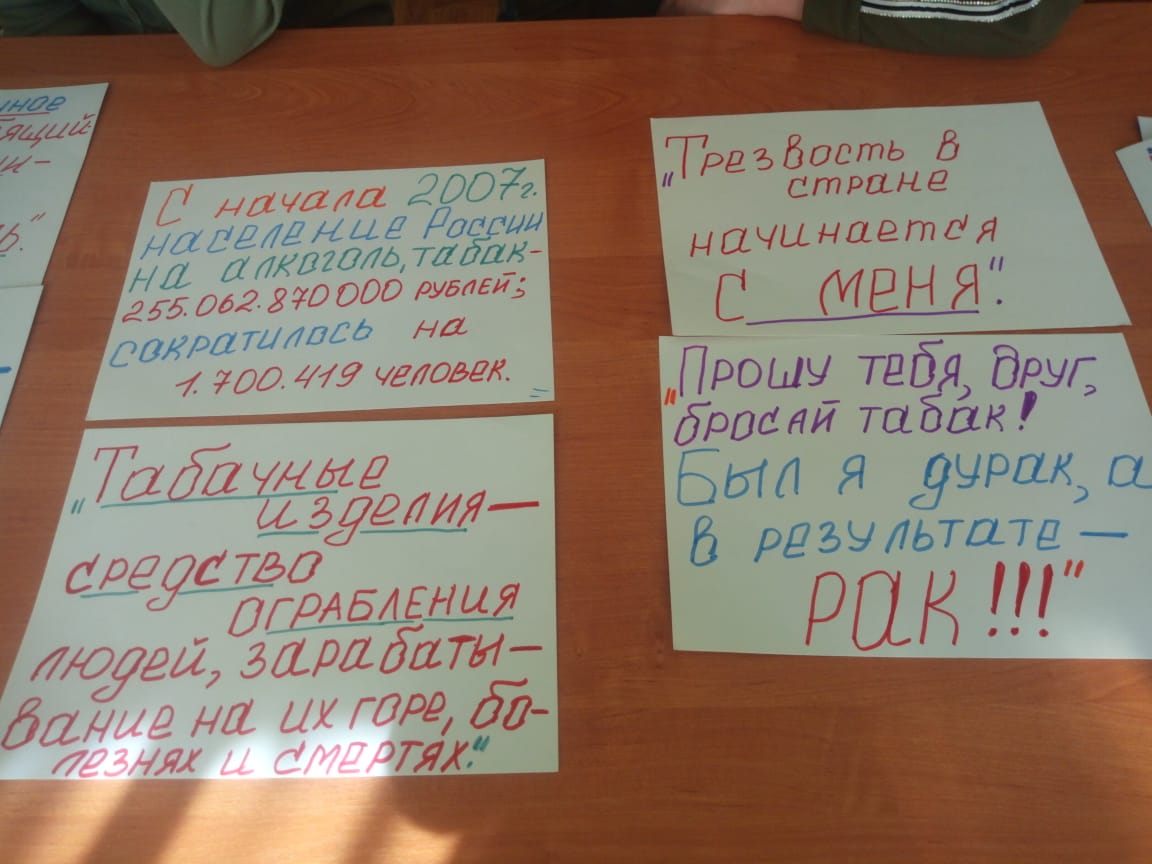 С начала 2007г.
население России
на алкоголь, табак-
255.062.870000 рублей;
сократилось на
1.700.419 человек.
"Табачные
изделия—
средство
ограбления
людей, зарабаты-
вание на их горе, бо-
лезнях и смертях."
"Трезвость в
стране
начинается
с меня".
"Прошу тебя, друг,
бросай табак!
Был я дурак, а
в результате —
РАК!!!"